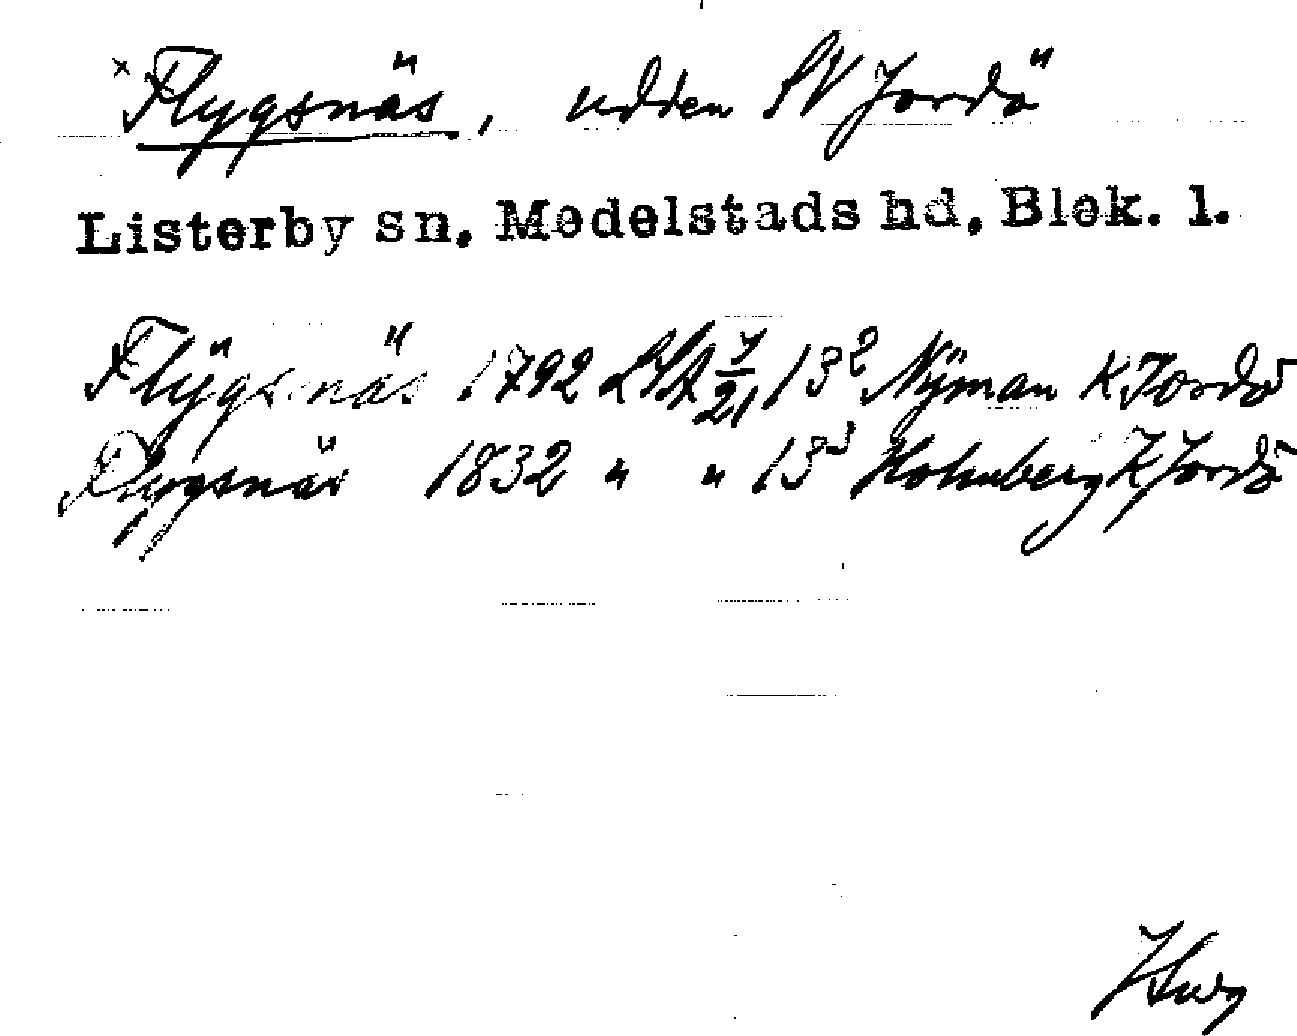 × Flygsnäs, udden SV Jordö
Listerby sn. Medelstads hd. Blek. l.
Flÿgsnäs 1792 LSA 7/21, 13² Nÿman K Jordö
Flygsnäs 1832 " " 13³ Holmberg K Jordö